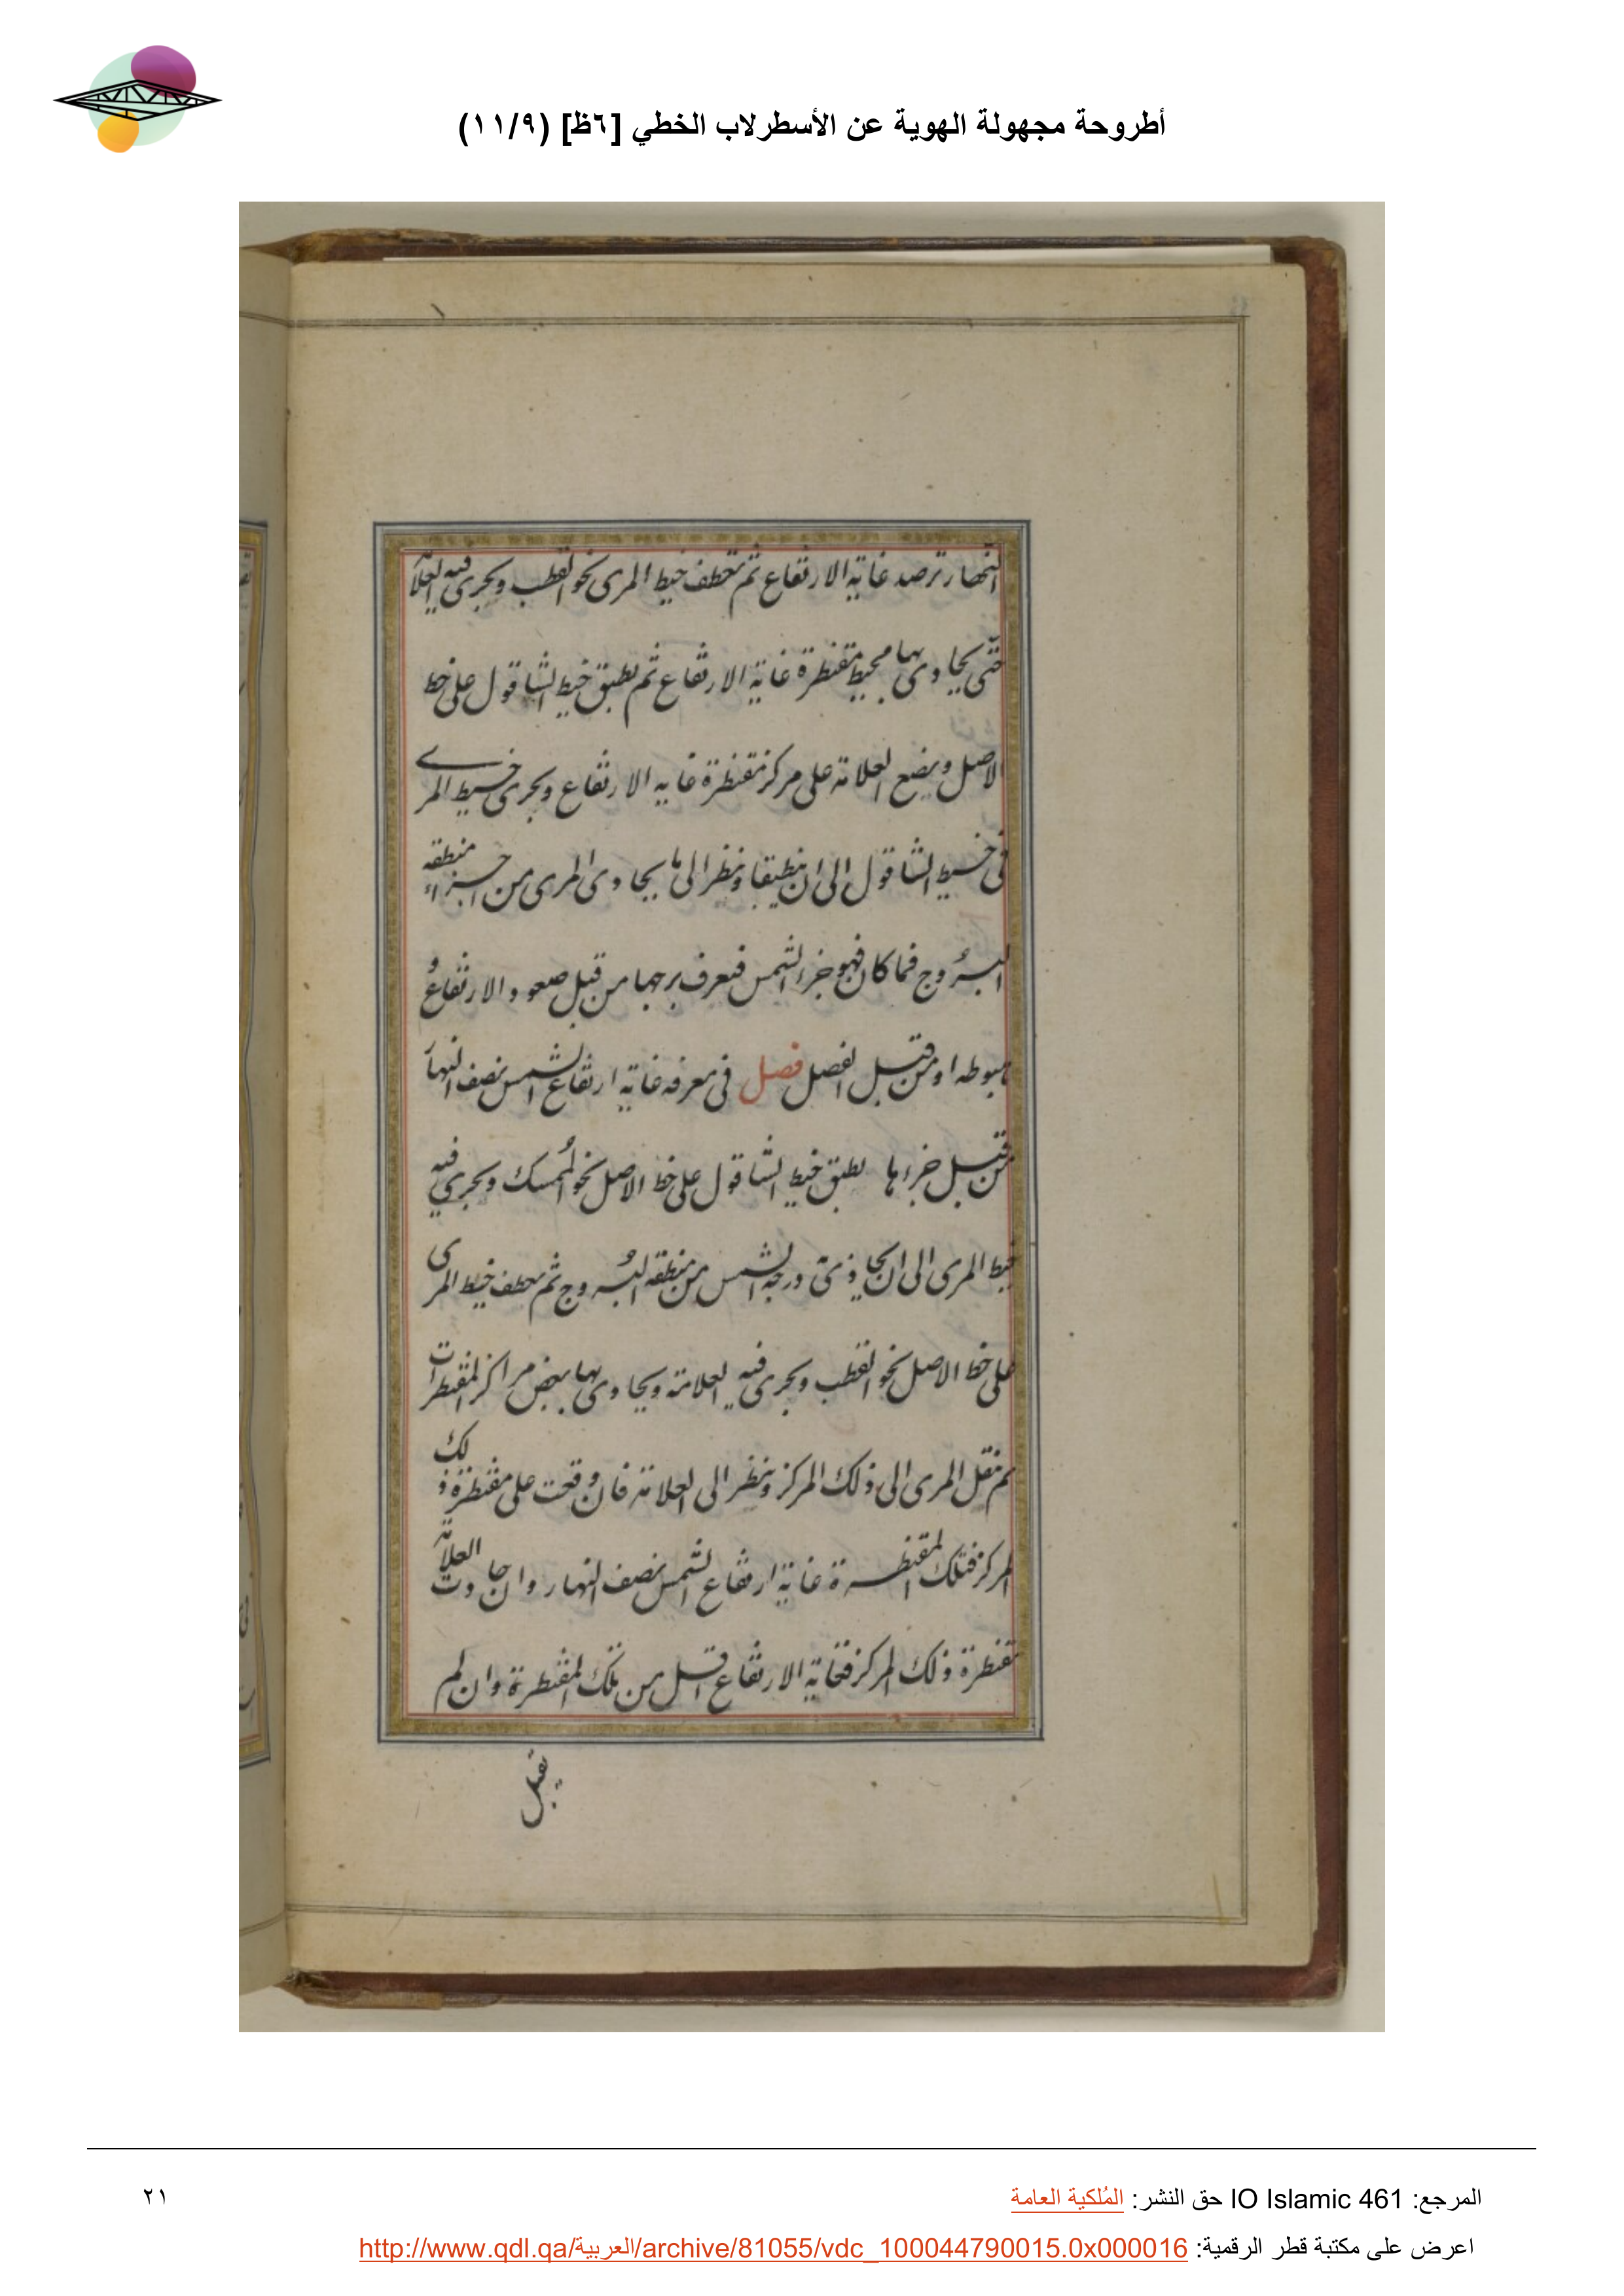 أطروحة مجهولة الهوية عن الأسطرلاب الخطي [٦ظ] (١١/٩)
النهار ترصد غاية الارتفاع ثم تعطف خيط المرى نحو القطب ويجرى فيه العلامة
حتى يحاوى بها محيط مقنطرة غاية الارتفاع ثم يطبق خيط الشاقول على خط
الاصل ويضع العلامة على مركز مقنطرة غاية الارتفاع ويجرى خيط المرى
فى خيط الشاقول الى ان ينطبقا وينظر الى ما يحاوى المرى من اجزاء منطقه
البروج فما كان فهو جزء الشمس فيعرف برجها من قبل صعود الارتفاع و
هبوطه او من قبل الفصل فصل فى معرفه غاية ارتفاع الشمس نصف النهار
من قبل جزءها يطبق خيط الشاقول على خط الاصل نحو الممسك ويجرى فيه
خيط المرى الى ان يحاوى درجة الشمس من منطقه البروج ثم يعطف خيط المرى
على خط الاصل نحو القطب ويجرى فيه العلامة ويحاوى بها بعض مراكز المقنطرات
ثم ينقل المرى الى ذلك المركز وينظر الى العلامة فان وقعت على مقنطرة ذلك
المركز فتلك المقنطرة غاية ارتفاع الشمس نصف النهار وان جاوزت العلامة
مقنطرة ذلك المركز فغاية الارتفاع اقل من تلك المقنطرة وان لم
المرجع: IO Islamic 461 حق النشر: المُلكية العامة
٢١
اعرض على مكتبة قطر الرقمية: http://www.qdl.qa/العربية/archive/81055/vdc_100044790015.0x000016